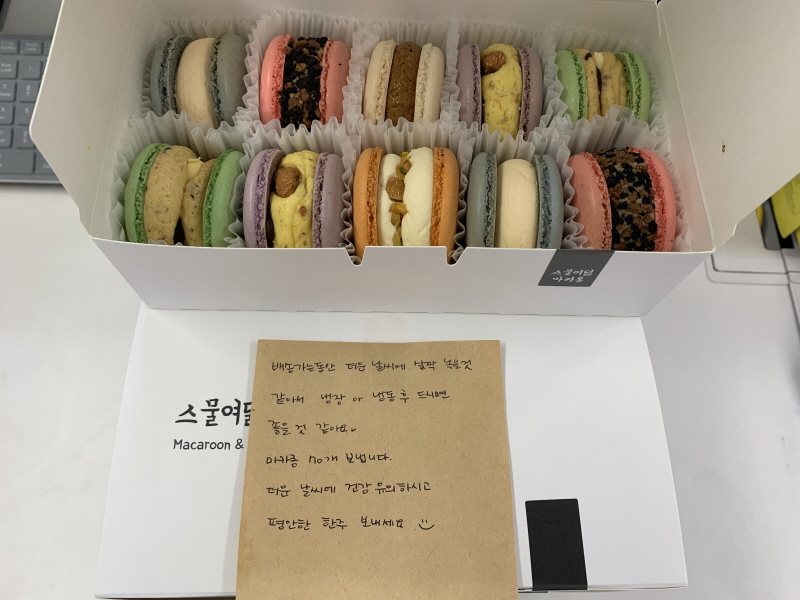 스물여덟
마카롱
스물여덟
Macaroon &
배송가는동안 더운 날씨에 살짝 녹을것
같아서 냉장 or 냉동 후 드시면
좋을것 같아요~
마카롱 70개 보냅니다.
더운 날씨에 건강 유의하시고
평안한 한주 보내세요 :)